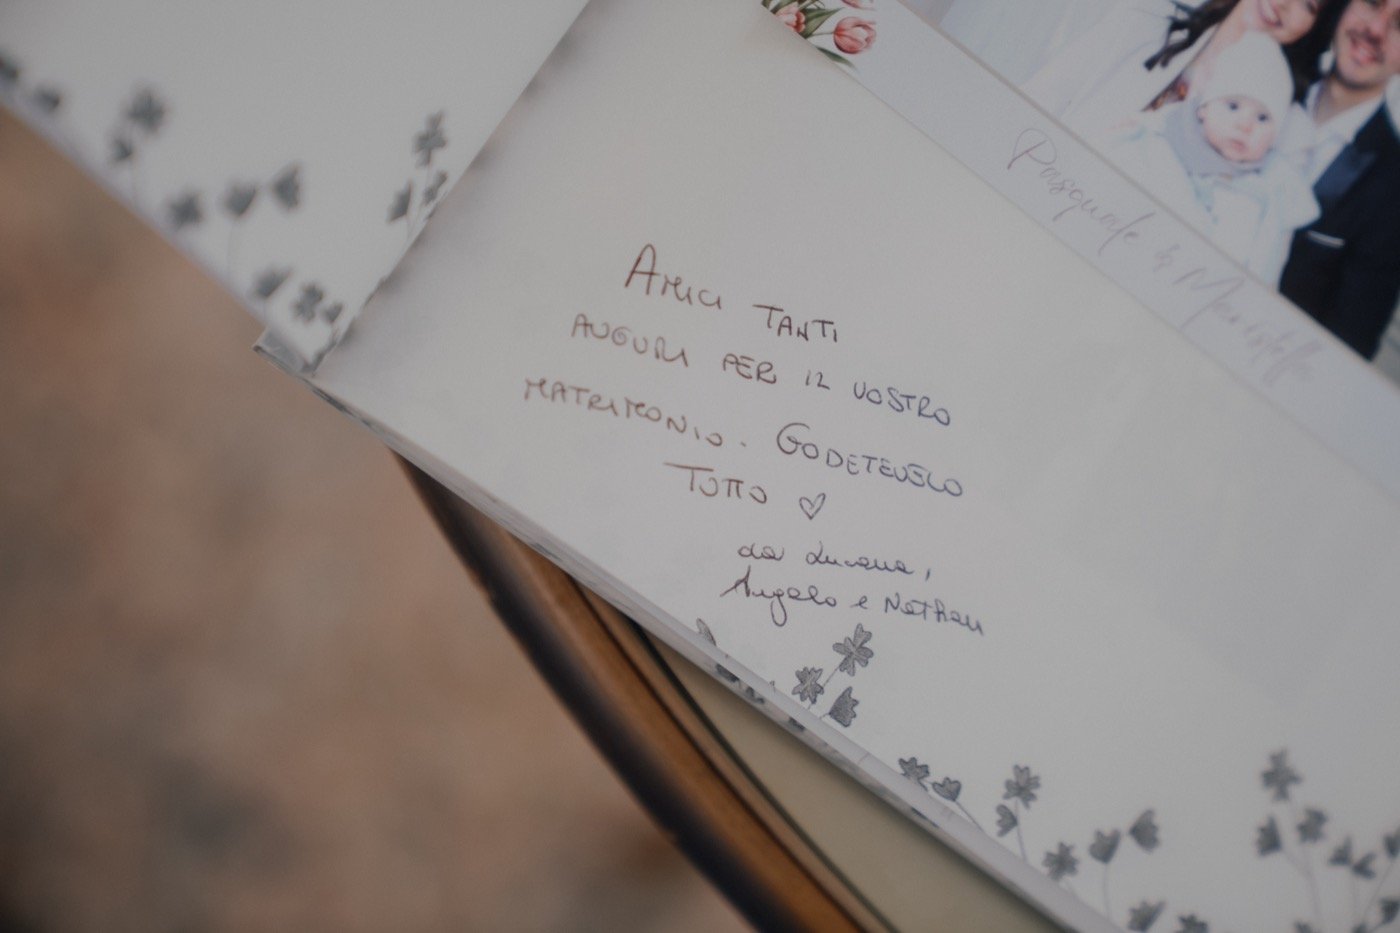 Amici TANTI
AUGURI PER IL VOSTRO
MATRIMONIO. GODETEVELO
TUTTO ♡
da Luciana,
Angelo e Nathan
Pasquale & Maristella